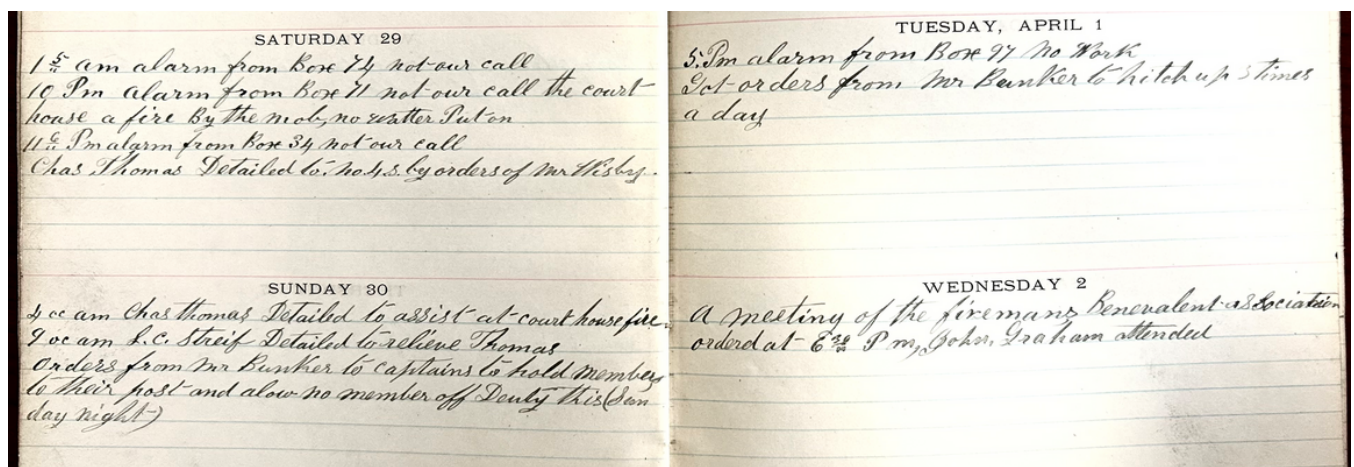 SATURDAY 29
1 5/" am alarm from Box 74 not our call
10 Pm alarm from Box 71 not our call the court
house a fire By the mob, no watter Put on
11 Pm alarm from Box 34 not our call
Chas Thomas Detailed to. no 4s. by orders of Mr Wisby.
SUNDAY 30
4 oc am Chas thomas Detailed to assist at court house fire
9 oc am L.C. Streif Detailed to relieve Thomas
orders from Mr Bunker to captains to hold members
to their post and alow no member off Deuty this (Sun
day night)
TUESDAY, APRIL 1
5. Pm alarm from Box 97 No Work
Got orders from Mr Bunker to hitch up 3 times
a day
WEDNESDAY 2
A meeting of the firemans Benevalent association
orderd at Pm, John, Graham attended